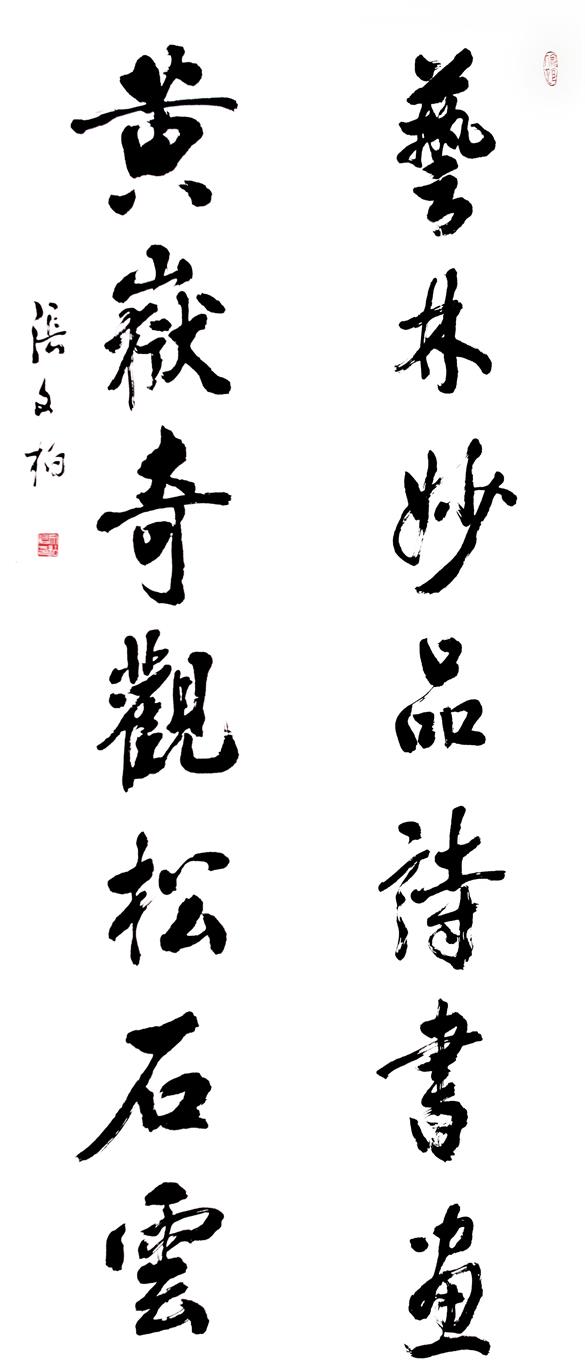 藝林妙品詩書畫
黃嶽奇觀松石雲
張文柏